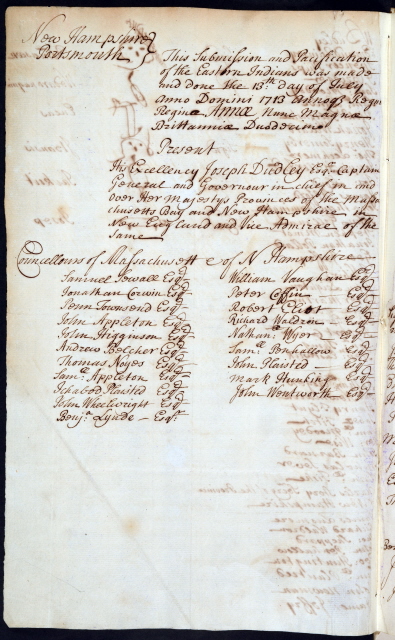 New Hampshire
Portsmouth
This Submission and Pacification
of the Eastern Indians was made
and done the 13th day of July
Anno Domini 1713 Annoqe Regni
Reginæ ANNÆ Nunc Magnæ
Brittanniæ Duodecimo
Present
His Excellency Joseph Dudley Esqr Captain
General and Governour in chief in and
over Her Majestys Provinces of the Massa
chusetts Bay and New Hampshire in
New England and Vice Admiral of the
same
Councellours of Massachusetts & of N Hampshire
Samuel Sewall Esqr
Jonathan Corwin Esqr
Penn Townsend Esqr
John Appleton Esqr
John Higginson Esqr
Andrew Belcher Esqr
Thomas Noyes Esqr
Saml Appleton Esqr
Ichabod Plaisted Esqr
John Wheelwright Esqr
Benja Lynde Esqr
William Vaughan Esqr
Peter Coffin Esqr
Robert Eliot Esqr
Richard Waldron Esqr
Nathan Wyer Esqr
Saml Penhallow Esqr
John Plaisted Esqr
Mark Hunking Esqr
John Wentworth Esqr